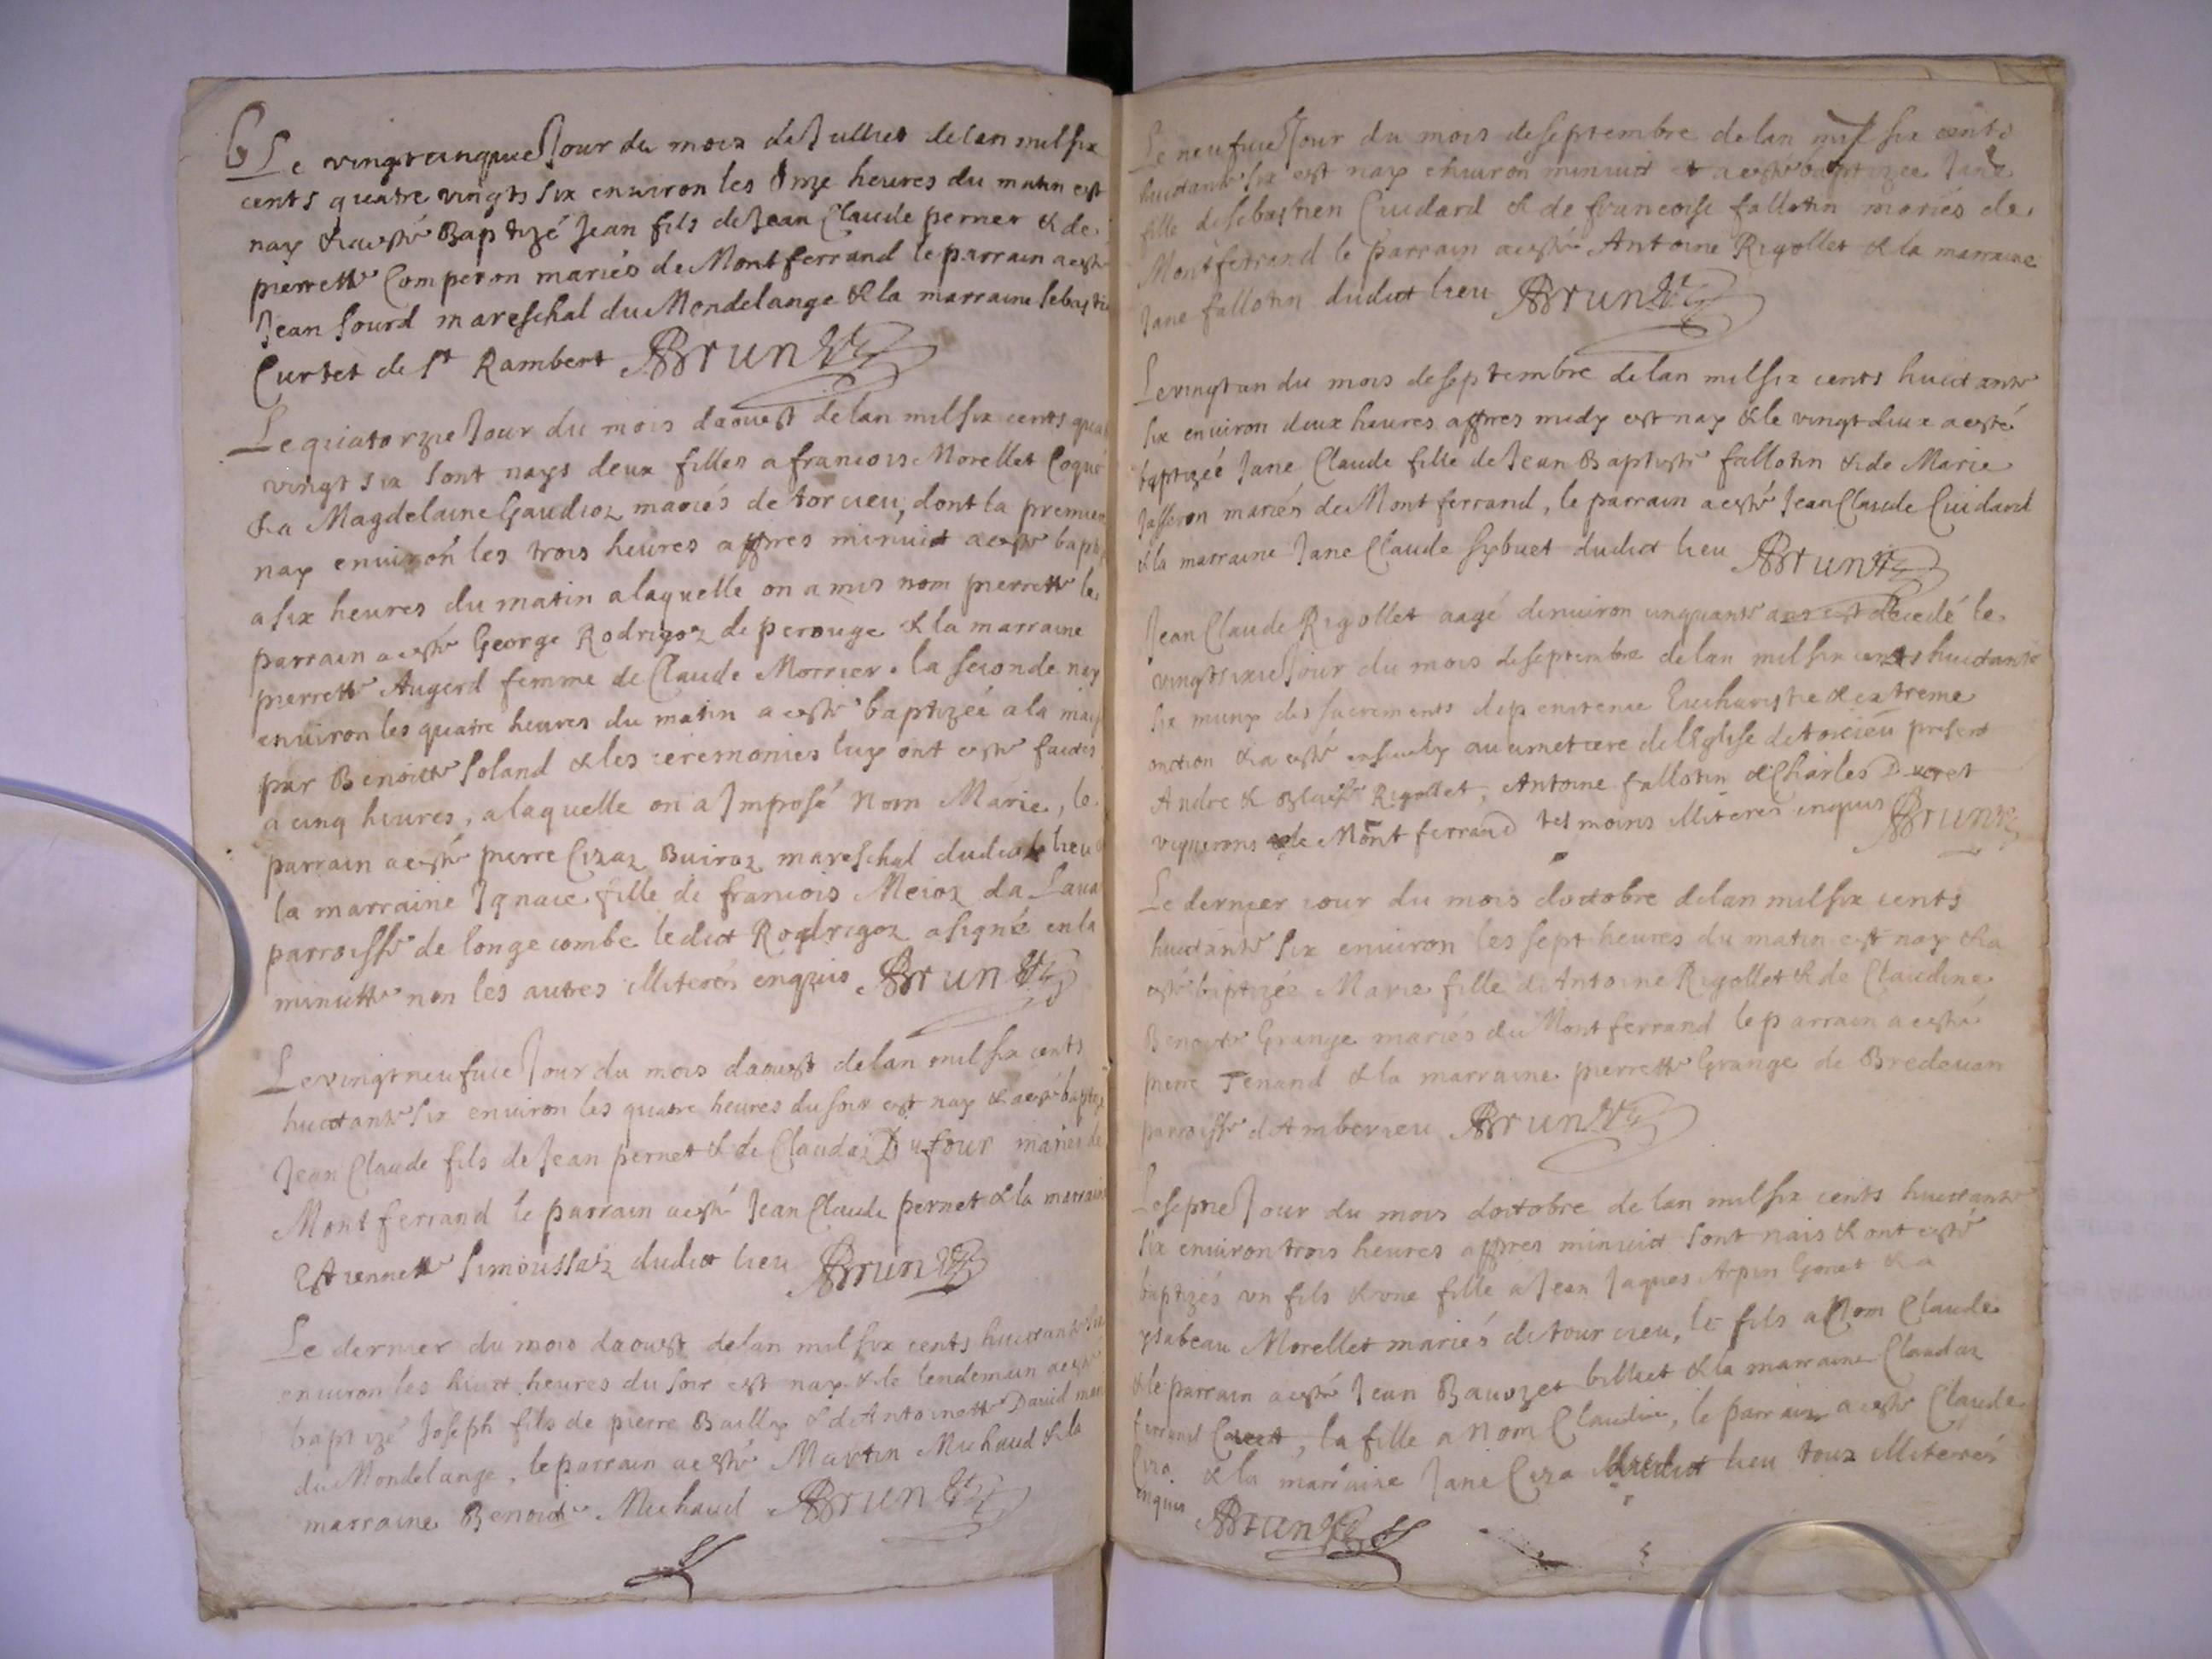 6 Le vingtcinquie Jour du mois de Jullies de lan mil six
cents quatre vingts six environ les Onze heures du matin est
nay & a esté Baptizé Jean fils de Jean Claude perner & de
pierrette Comperon mariés de Montferrand le parrain a esté
Jean Sourd mareschal du Mondelange & la marraine Sebasti
Curtet de St Rambert ABrun
Le quiatorzie Jour du mois daoust de lan mil six cents qua
vingt six sont nays deux filles a francois Morellet Coque
& a Magdelaine Gaudioz mariés de torcieu, dont la premier
nay environ les trois heures appres minuict a esté bapt
a six heures du matin a laquelle on a mis nom pierrette le
parrain a esté George Rodrigoz de perouge & la marraine
pierrette Augerd femme de Claude Morrier. la seconde nay
environ les quatre heures du matin a esté baptizée a la mai
par Benoitte Soland & les ceremonies luy ont esté faictes
a cinq heures, a laquelle on a Imposé nom Marie, le
parrain a esté pierre Cizaz Buiroz mareschal dudict lieu
la marraine Ignace fille de francois Meioz da Lava
parroisse de longecombe ledict Rodrigoz a signé en la
minutte non les autres illiterés enquis ABrun
Le vingtneufuie Jour du mois daoust de lan mil six cents
huictante six environ les quatre heures du soir est nay & a esté bapti
Jean Claude fils de Jean pernet & de Claudaz Dufour mariés de
Montferrand le parrain a esté Jean Claude pernet & la marrain
Estiennette Simoussaz dudict lieu ABrun
Le dernier du mois daoust de lan mil six cents huictante six
environ les huict heures du soir est nay & le lendemain a esté
baptizé Joseph fils de pierre Bailly & de Antoinette David mar
du Mondelange, le parrain a esté Martin Michaud & la
marraine Benoite Michaud ABrun
Le neufuie Jour du mois de septembre de lan mil six cents
huictante six est nay environ minuict et a esté baptizee Jane
fille de sebastien Cuidard & de francoise fallotin mariés de
Montferrand le parrain a esté Antoine Rigollet & la marraine
Jane fallotin dudict lieu ABrun
Le vingtun du mois de septembre de lan mil six cents huictante
six environ deux heures appres midy est nay & le vingtdeux a esté
baptizée Jane Claude fille de Jean Baptiste fallotin & de Marie
Jasseron mariés de Montferrand, le parrain a esté Jean Claude Cuidard
& la marraine Jane Claude Sybuet dudict lieu ABrun
Jean Claude Rigollet aagé denviron cinquante ans est decedé le
vingtsixie Jour du mois de septembre de lan mil six cents huictante
six muny des sacrements de penitence Eucharistie & extreme
onction & a esté ensevely au cimetiere de lEglise de torcieu present
Andre & Blaise Rigollet, Antoine fallotin & Charles Ducret
vignerons de Montferrand tesmoins illiterés enquis ABrun
Le dernier iour du mois doctobre de lan mil six cents
huictante six environ les sept heures du matin est nay & a
esté baptizée Marie fille de Antoine Rigollet & de Claudine
Benoite Grange mariés du Montferrand le parrain a esté
pierre Tenand & la marraine pierrette Grange de Bredevan
parroisse dAmberieu ABrun
Le septie Jour du mois doctobre de lan mil six cents huictante
six environ trois heures appres minuict sont nais & ont esté
baptizés un fils & une fille a Jean Jaques Arpin Gonet & a
ysabeau Morellet mariés de tourcieu, le fils a Nom Claude
& le parrain a esté Jean Bauozet billiet & la marraine Claudaz
, la fille a Nom Claudine, le parrain a esté Claude
Ciza & la marraine Jane Ciza dudict lieu tous illiterés
enquis ABrun